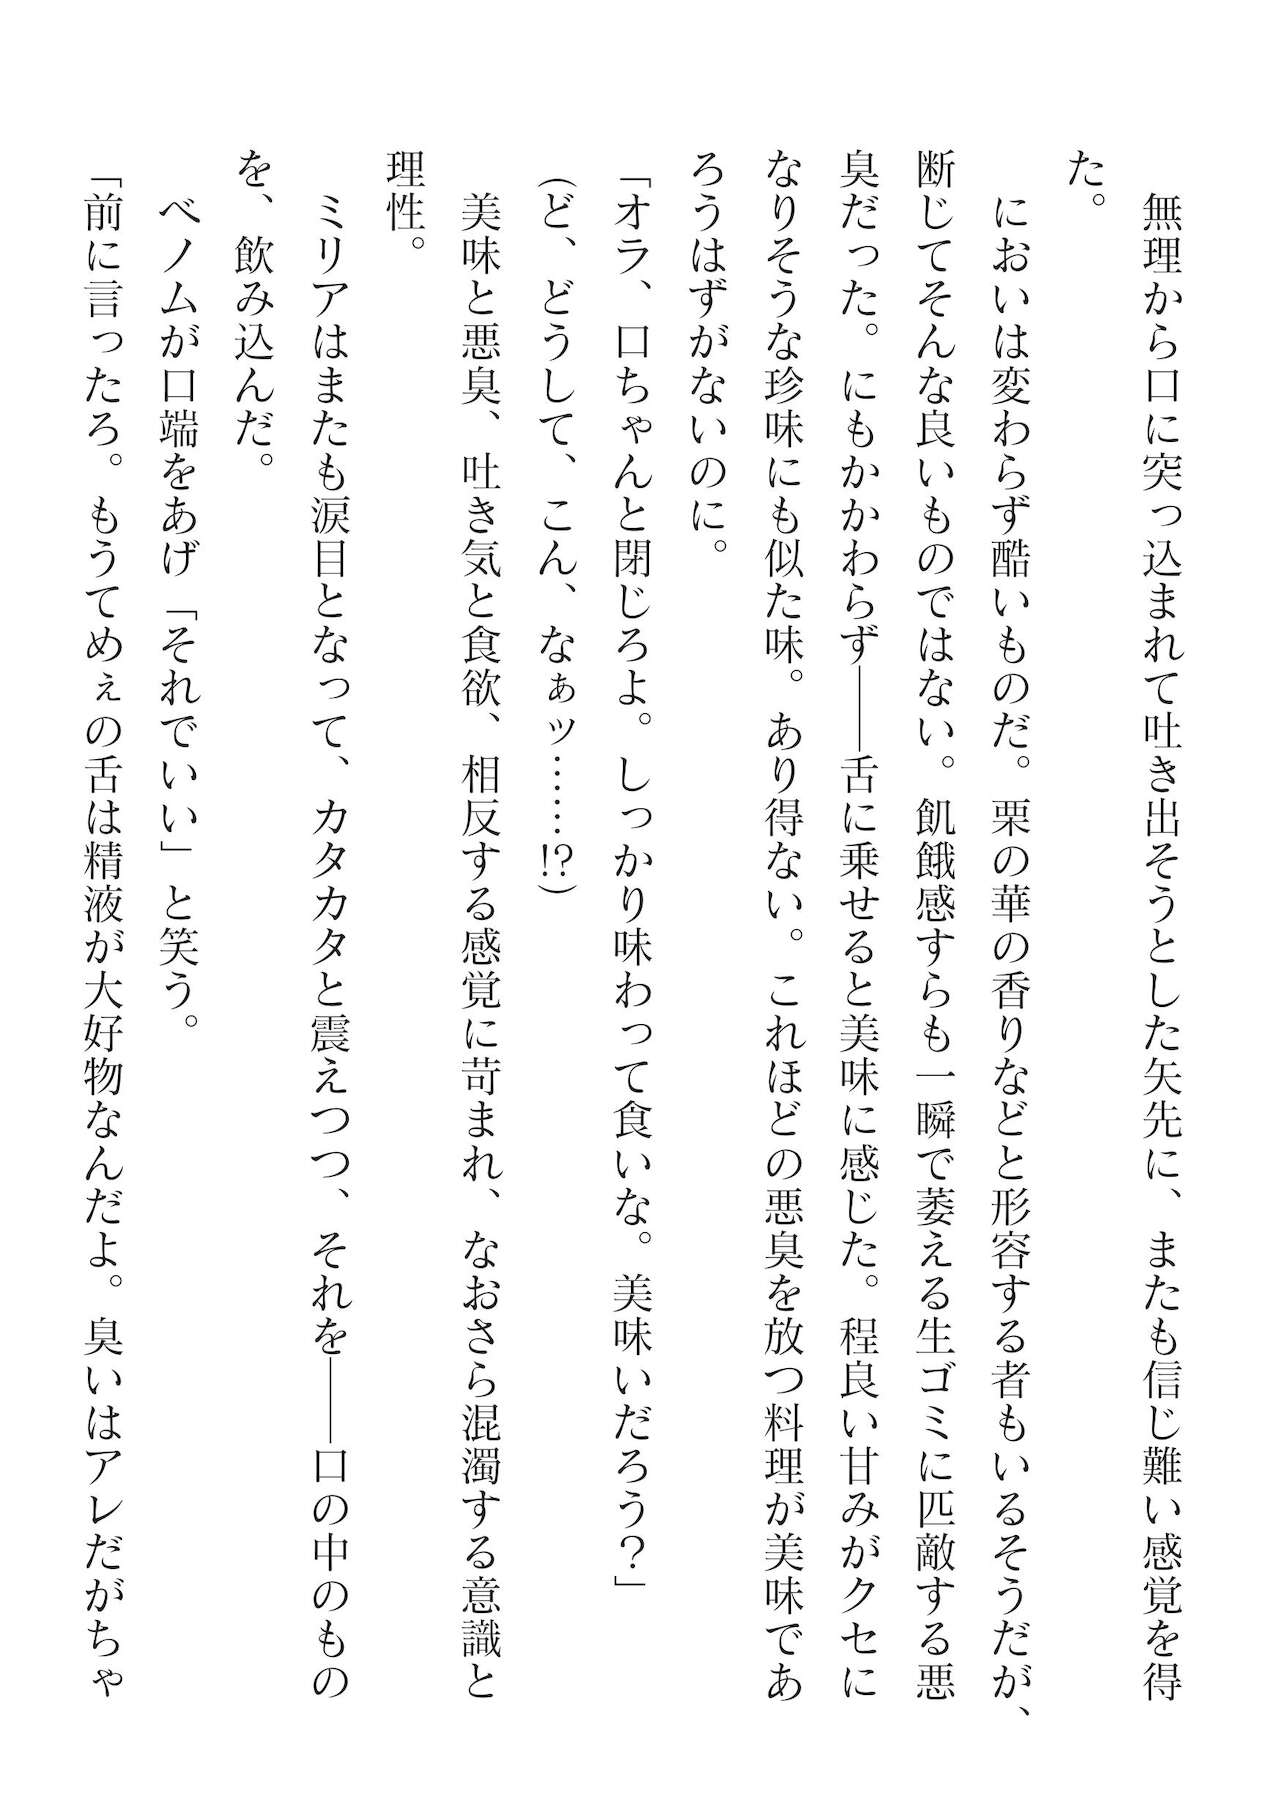 無理から口に突っ込まれて吐き出そうとした矢先に、またも信じ難い感覚を得
た。
　においは変わらず酷いものだ。栗の華の香りなどと形容する者もいるそうだが、
断じてそんな良いものではない。飢餓感すらも一瞬で萎える生ゴミに匹敵する悪
臭だった。にもかかわらず――舌に乗せると美味に感じた。程良い甘みがクセに
なりそうな珍味にも似た味。あり得ない。これほどの悪臭を放つ料理が美味であ
ろうはずがないのに。
「オラ、口ちゃんと閉じろよ。しっかり味わって食いな。美味いだろう？」
（ど、どうして、こん、なぁッ……!?）
　美味と悪臭、吐き気と食欲、相反する感覚に苛まれ、なおさら混濁する意識と
理性。
　ミリアはまたも涙目となって、カタカタと震えつつ、それを――口の中のもの
を、飲み込んだ。
　ベノムが口端をあげ「それでいい」と笑う。
「前に言ったろ。もうてめぇの舌は精液が大好物なんだよ。臭いはアレだがちゃ